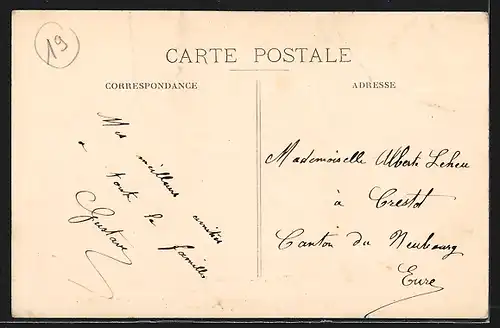 19
CARTE POSTALE
CORRESPONDANCE
Mes meilleures amitiés
à toute la famille
Gustave
ADRESSE
Mademoiselle Albert Leheu
à Crestot
Canton du Neubourg
Eure